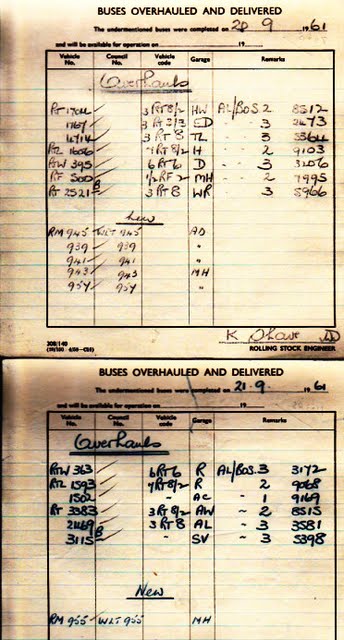 BUSES OVERHAULED AND DELIVERED
The undermentioned buses were completed on 20 9 1961
and will be available for operation on 19
Vehicle No. Council No. Vehicle code Garage Remarks
Overhauls
RT 1704 3 RT8/2 HW AL/BOS. 2 8512
1767 3 RT3/3 SD - - 3 2473
4714 3 RT 8 TL - - 3 5364
RTL 1606 7 RT8/2 H - - 2 9103
RTW 395 6 RT6 D - - 3 3206
RF 500 B 1/2RF2 MH - - 2 7995
RT 2521 3 RT8 WR - - 3 5966
New
RM 945 WLT 945 AD
939 939 "
941 941 "
943 943 MH
954 954 "
308/140
ROLLING STOCK ENGINEER
BUSES OVERHAULED AND DELIVERED
The undermentioned buses were completed on 21.9. 1961
and will be available for operation on 19
Vehicle No. Council No. Vehicle code Garage Remarks
Overhauls
RTW 363 6 RT6 R AL/BOS. 3 3172
RTL 1593 7 RT8/2 R 2 9068
1502 - AC - 1 9169
RT 3383 3 RT8/2 AW ~ 2 8515
2469 3 RT 8 AL ~ 3 3581
3115 B - SV ~ 3 5398
New
RM 955 WLT 955 MH